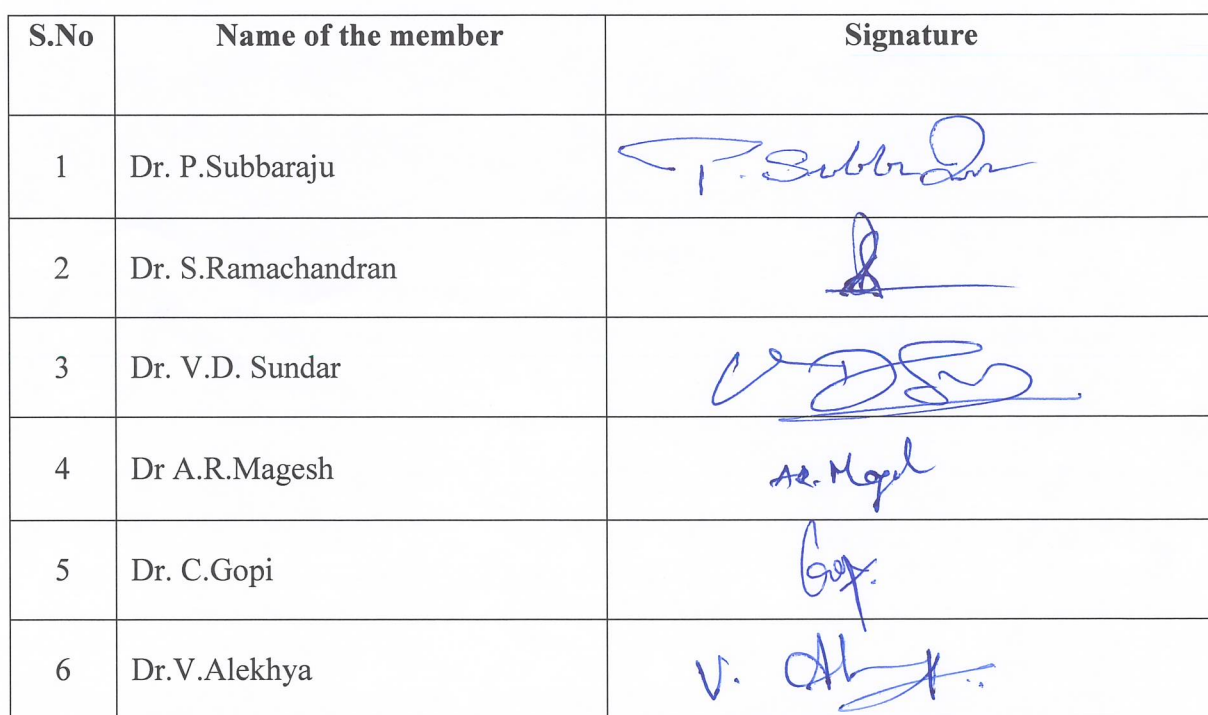 S.No Name of the member Signature
1 Dr. P.Subbaraju P. Subbaraju
2 Dr. S.Ramachandran
3 Dr. V.D. Sundar V D
4 Dr A.R.Magesh AR. Magesh
5 Dr. C.Gopi Gopi
6 Dr.V.Alekhya V.